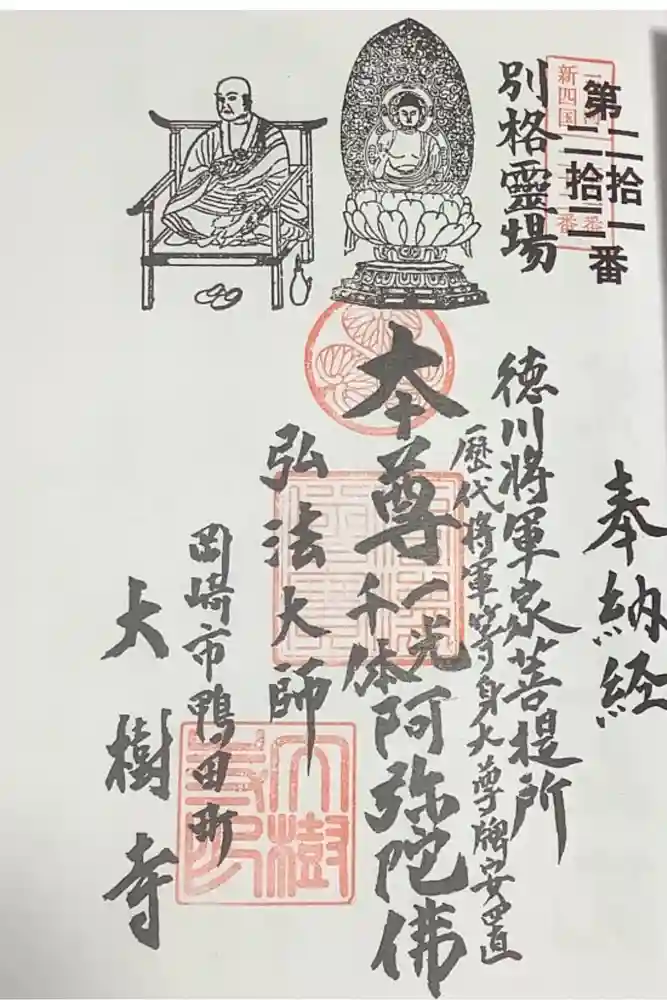 第二拾一番
二拾二
奉納経
新四国
番
番
別格靈場
徳川将軍家菩提所
歴代将軍等身大尊牌安置
本尊一光千体阿弥陀佛
弘法大師
岡崎市鴨田町
大樹寺
大樹寺印